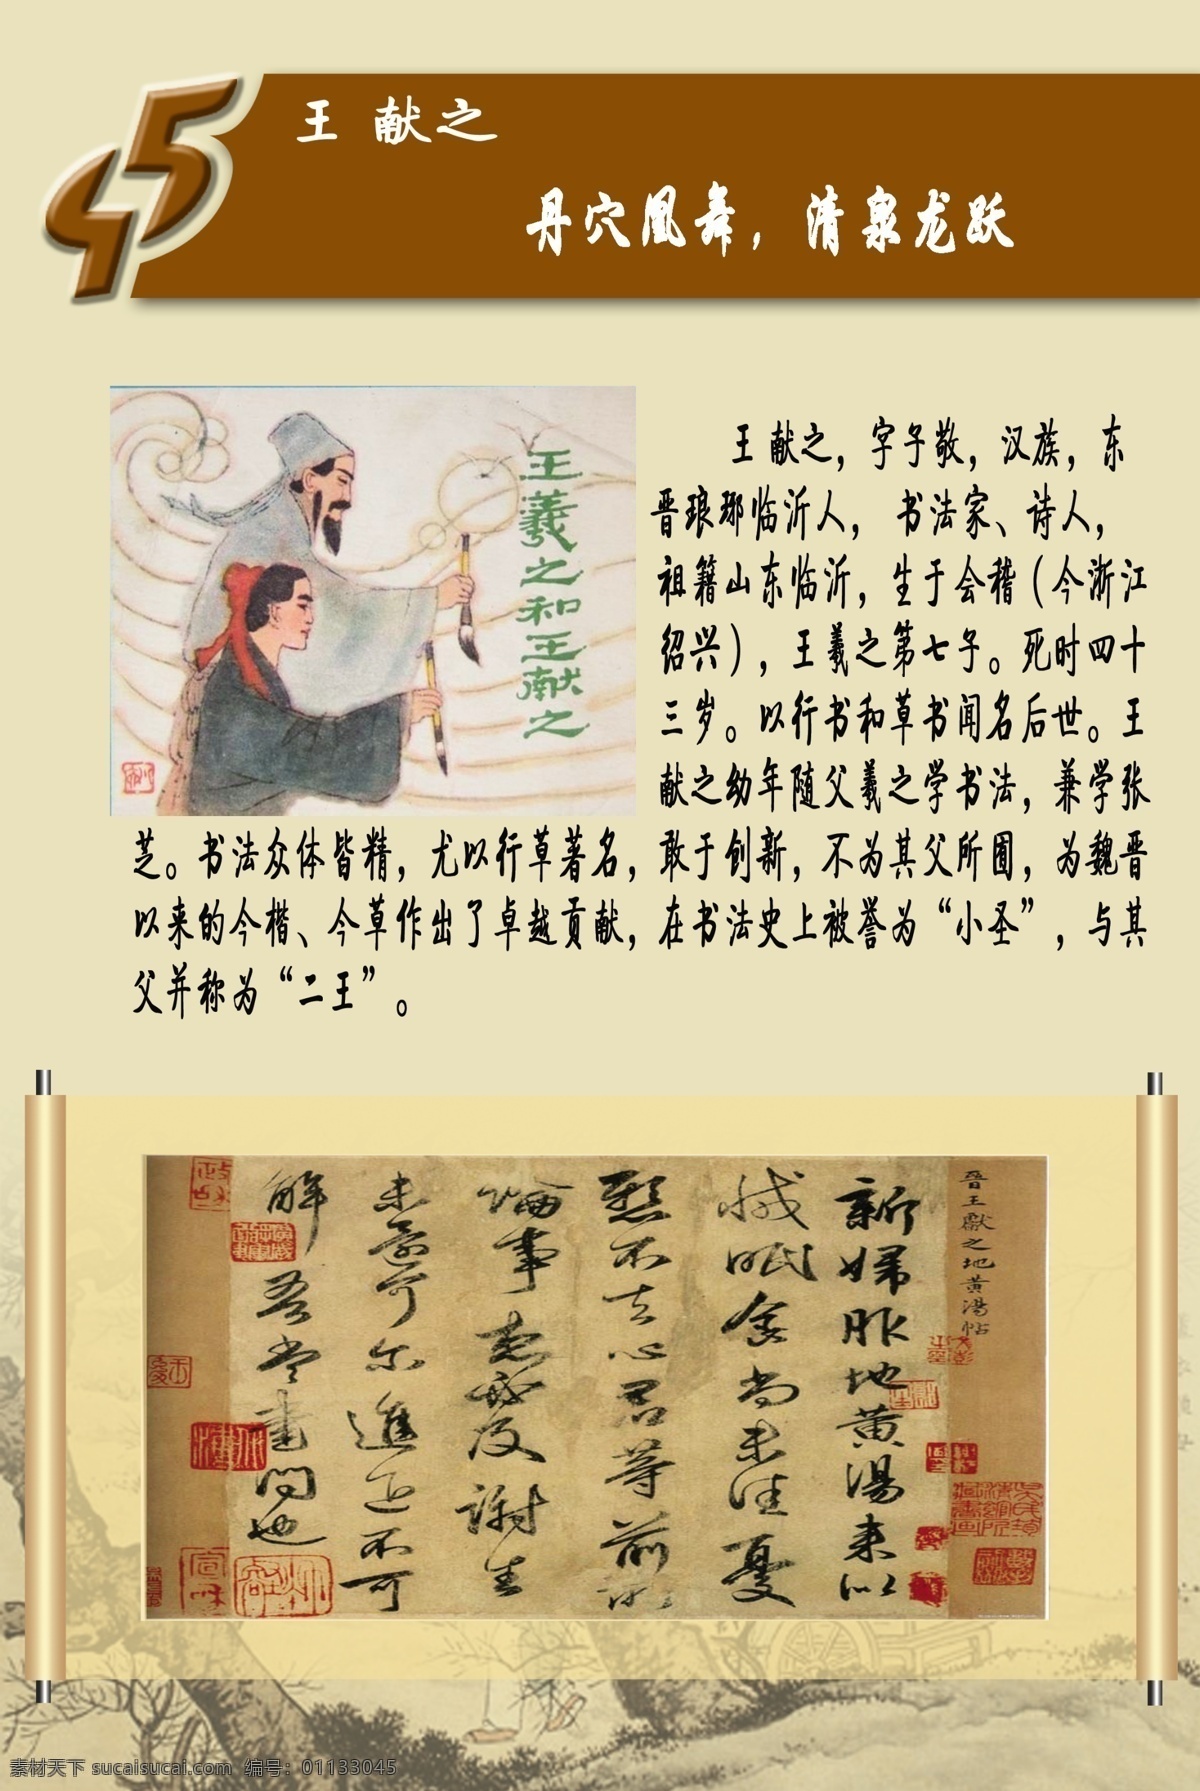 王 献之
丹穴凰舞，清泉龙跃
王羲之和王献之
王献之，字子敬，汉族，东
晋琅琊临沂人， 书法家、诗人，
祖籍山东临沂，生于会稽（今浙江
绍兴），王羲之第七子。死时四十
三岁。以行书和草书闻名后世。王
献之幼年随父羲之学书法，兼学张
芝。书法众体皆精，尤以行草著名，敢于创新，不为其父所囿，为魏晋
以来的今楷、今草作出了卓越贡献，在书法史上被誉为“小圣”，与其
父并称为“二王”。
晋王獻之地黄湯帖
新婦服地黄湯来似
減眠食尚未佳憂
懸不去心君等前所
論事想必及謝生
未還可尔進退不可
解吾當書問也
素材天下 sucaisucai.com 编号：01133045